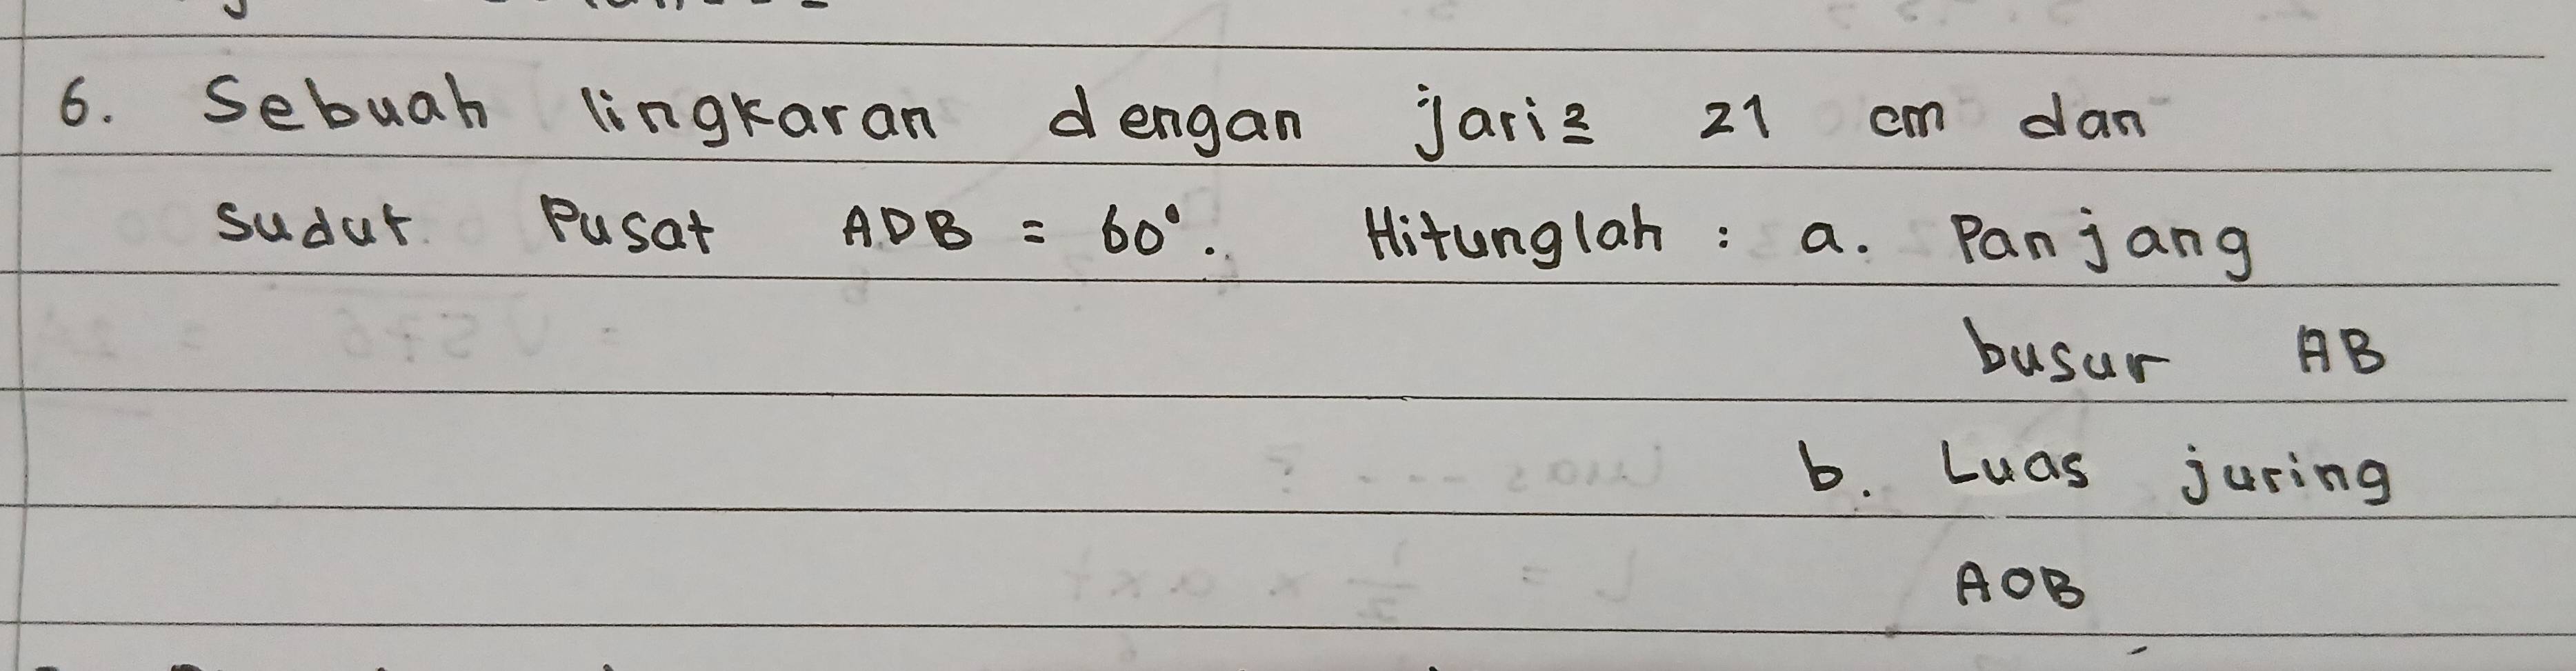 6. Sebuah lingkaran dengan jari2 21 cm dan
Sudut Pusat ADB = 60°. Hitunglah : a. Panjang
busur AB
b. Luas juring
AOB